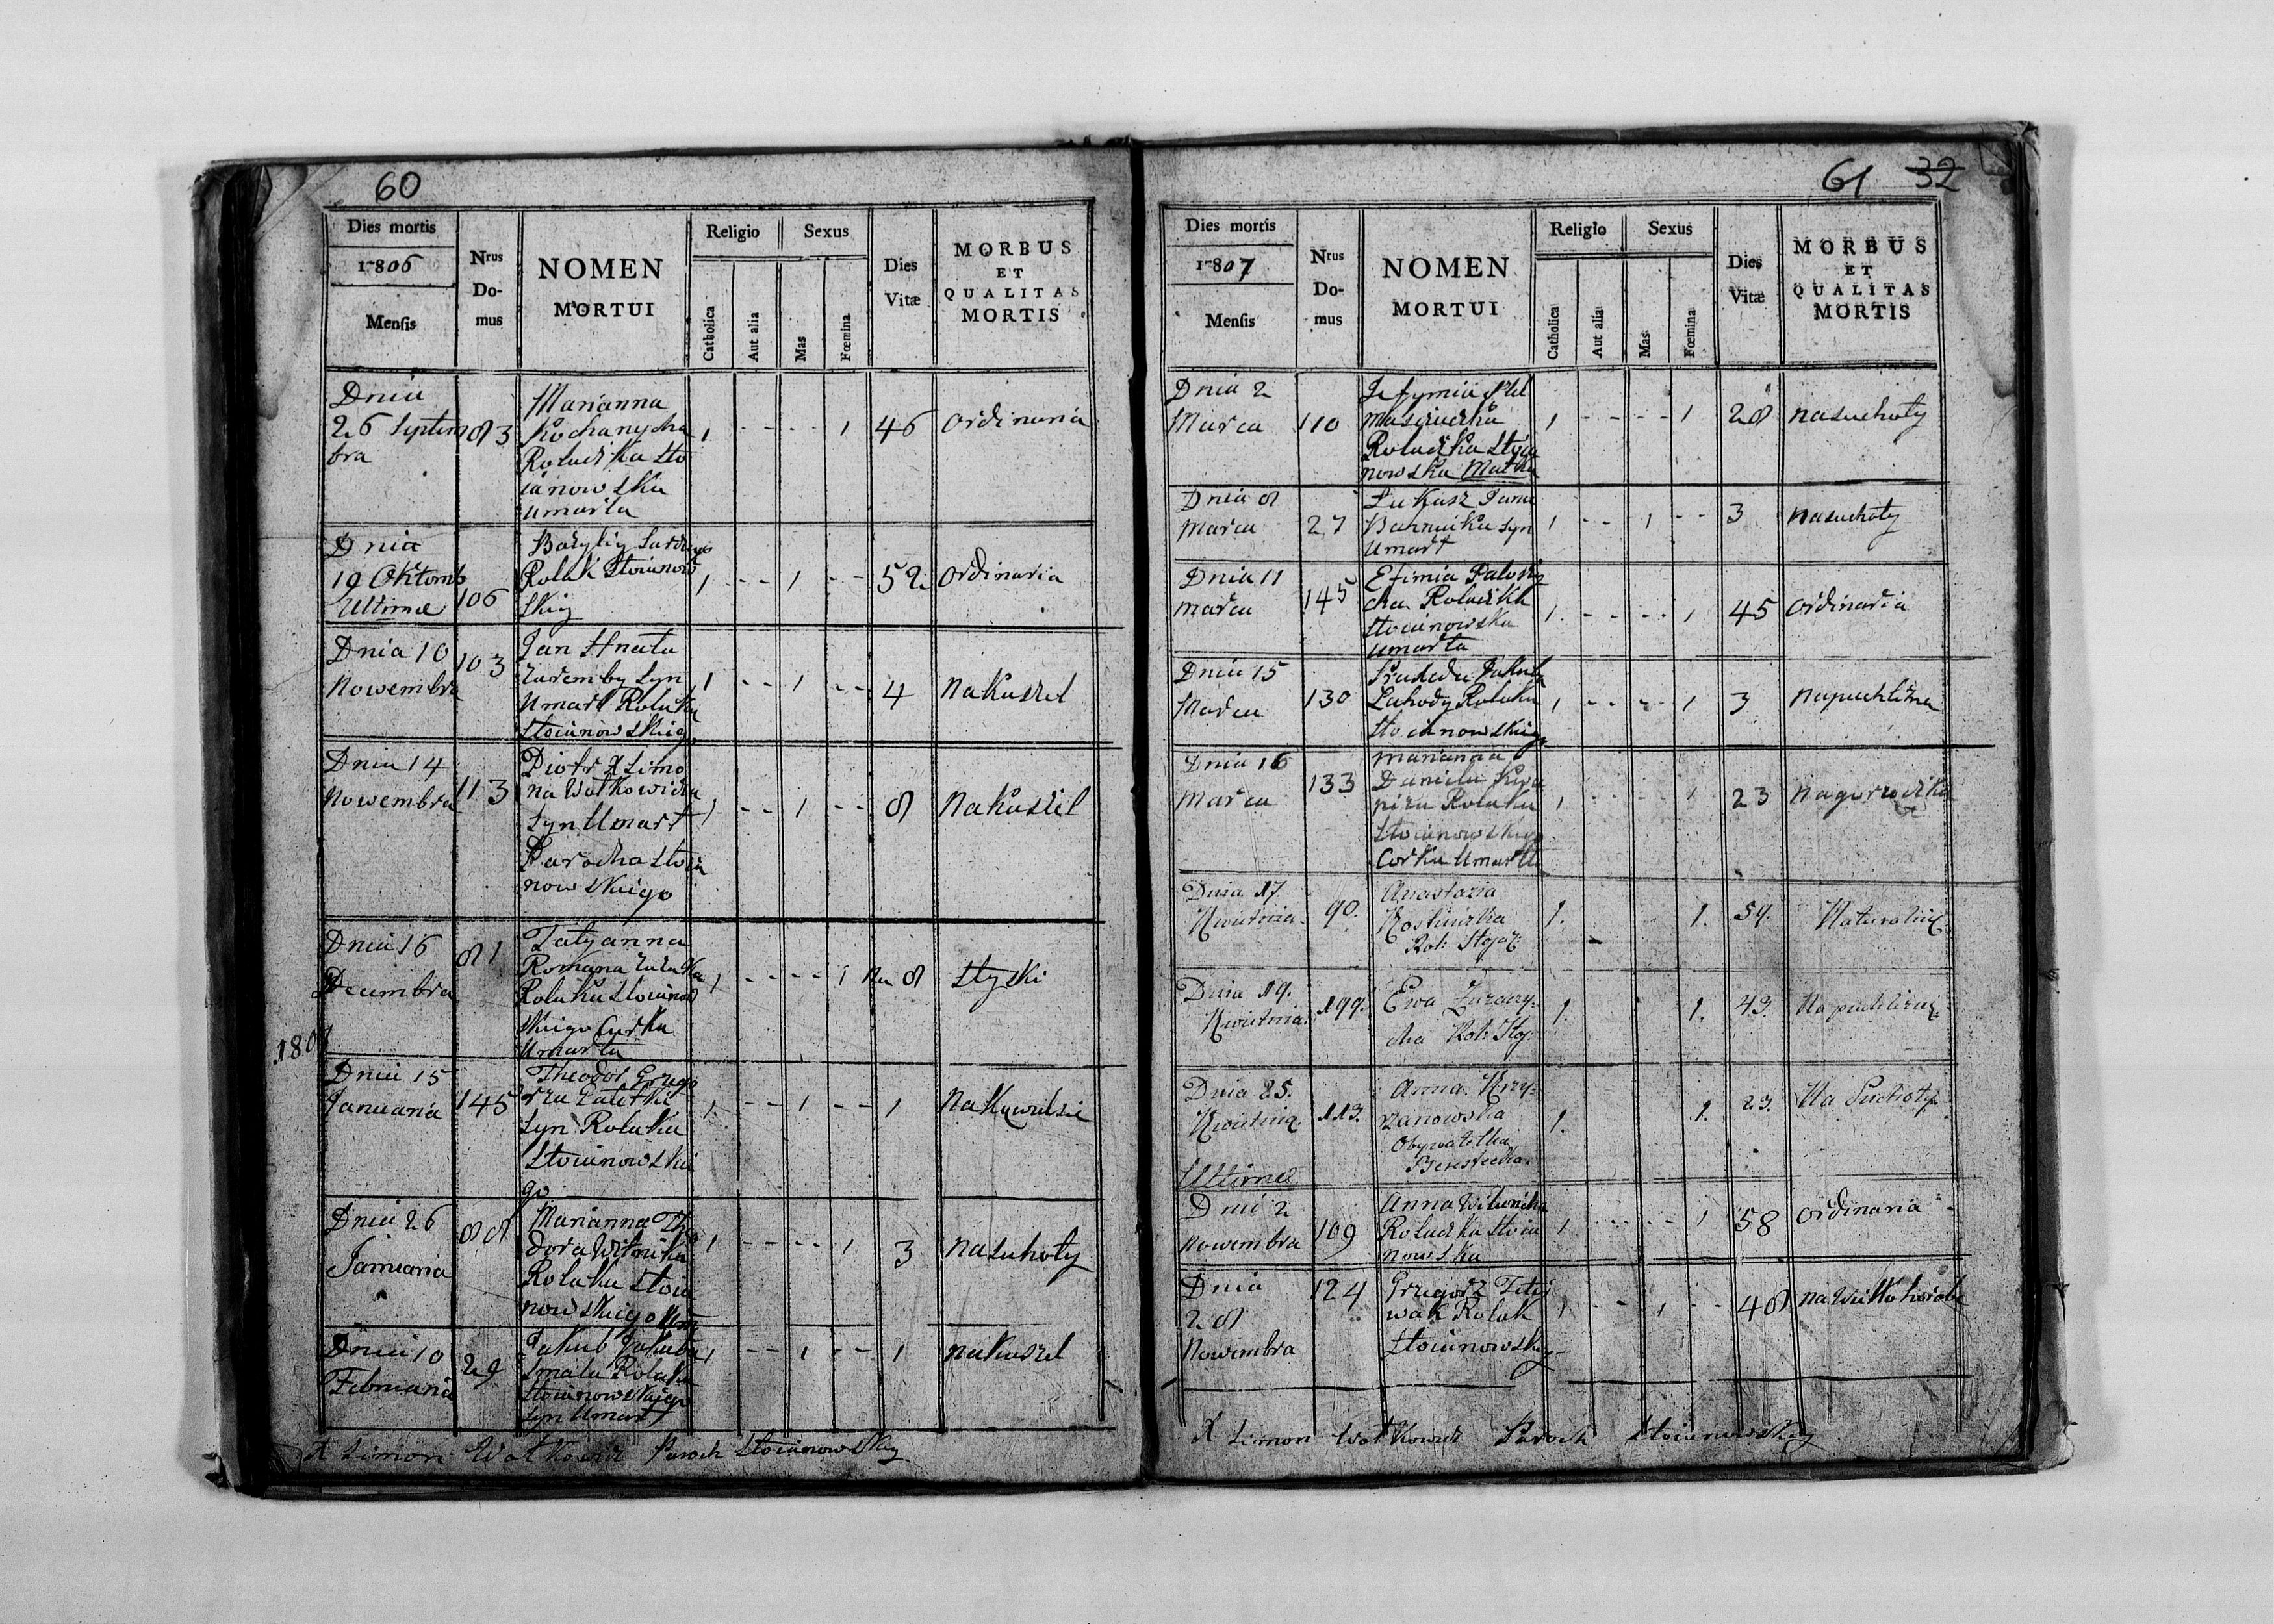 60
Dies mortis
1806
Mensis
Nrus Do-mus
NOMEN
MORTUI
Religio
Catholica
Aut alia
Sexus
Mas
Fœmina
Dies
Vitæ
MORBUS
ET
QUALITAS
MORTIS
Dnia
26 Septem
bra
83
Marianna
Kochanycha
Rolaczka Sto
ianowska
umarla
1 - - - - 1
46
ordinaria
Dnia
19 Oktomb
Ultimæ
106
Bazyly
Rolak Stoianow
skiy
1 - - 1 - -
52
ordinaria
Dnia 10
Nowembra
103
Jan Hnata
Zaremby Syn
Umarl Rolaka
Stoianowskiego
1 - - 1 - -
4
Na Kaszel
Dnia 14
Nowembra
113
Piotr X Simo
na Wolkowicza
Syn Umarl
Parocha Stoia
nowskiego
1 - - 1 - -
8
Na Kaszel
Dnia 16
Decembra
81
Tatyanna
Romana
Rolaka Stoianow
skiego Curka
Umarla
1 - - - - 1
8
1807
Dnia 15
Januaria
145
Theodor Grego
rza
Syn Rolaka
Stoianowskie
go
1 - - 1 - -
1
Dnia 26
Januaria
88
Marianna Th
dora
Rolaka Stoia
nowskiego Um
1 - - - - 1
3
na suhoty
Dnia 10
Februaria
29
Jakub Jakuba
Smala Rolaka
Stoianowskiego
Syn Umarl
1 - - 1 - -
1
na Kaszel
X Simon Wolkowicz Paroch Stoianowskiy
61 32
Dies mortis
1807
Mensis
Nrus Do-mus
NOMEN
MORTUI
Religio
Catholica
Aut alia
Sexus
Mas
Fœmina
Dies
Vitæ
MORBUS
ET
QUALITAS
MORTIS
Dnia 2
Marca
110
Rolaczka Stoia
nowska Matka
1 - - - - 1
28
na suchoty
Dnia 8
Marca
27
Lukasz Pana
Syn
Umarl
1 - - 1 - -
3
na suchoty
Dnia 11
Marca
145
Efimia
Rolaczka
Stoianowska
umarla
1 - - - - 1
45
ordinaria
Dnia 15
Marca
130
Lahody Rolaka
Stoianowskiego
1 - - - - 1
3
Na puchlizne
Dnia 16
Marca
133
Marianna
Daniela
Rolaka
Stoianowskiego
Corka Umarla
1 - - - - 1
23
Na gorzaczka
Dnia 17.
Kwietnia.
90.
Anastazia
Rol: Stojaz:
1. 1.
59.
Naturalnie
Dnia 19.
Kwietnia.
199.
Ewa
cha Rol: Stoj:
1. 1.
43.
Na puchlizne.
Dnia 25.
Kwietnia.
Ultimæ
113.
Anna Krzy-
zanowska
Obywatelka
Berestecka.
1. 1.
23.
Na Suchoty.
Dnia 2
Nowembra
109
Anna
Rolaczka Stoia
nowska
1 - - - - 1
58
ordinaria
Dnia
28
Nowembra
124
Gregorz
Rolak
Stoianowskiy
1 - - 1 - -
48
X Simon Wolkowicz Paroch Stoianowskiy